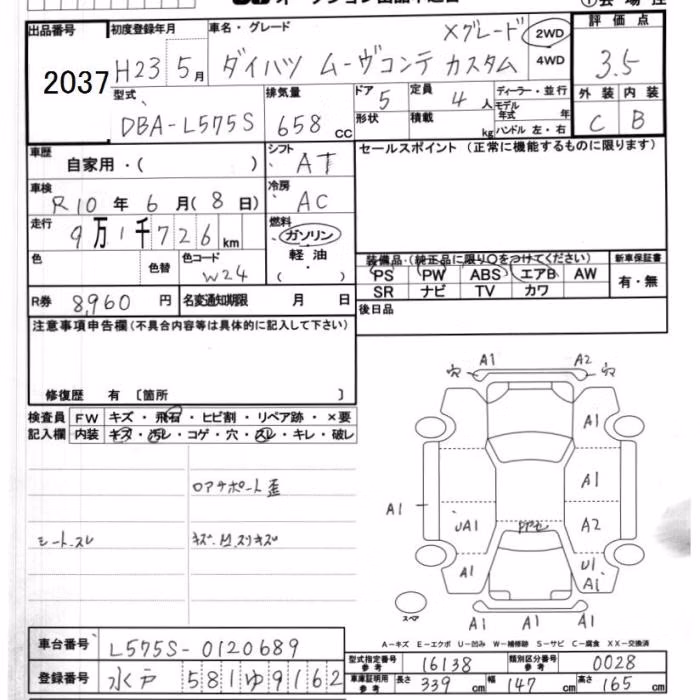 オークション出品申込書
出品番号 2037
初度登録年月 H23年5月
車名・グレード Xグレード
ダイハツ ムーヴコンテ カスタム
2WD
4WD
評価点 3.5
外装 内装
C B
型式 DBA-L575S
排気量 658 cc
ドア 5
形状
定員 4人
積載 kg
ディーラー・並行
モデル年式 年
ハンドル 左・右
車歴 自家用・( )
シフト AT
セールスポイント (正常に機能するものに限ります)
車検 R10年6月(8日)
冷房 AC
走行 9万1千726km
燃料 ガソリン
軽油
・
( )
色 色替
色コード W24
装備品・(純正品に限り○をつけてください)
新車保証書
PS PW ABS エアB AW
有・無
SR ナビ TV カワ
R券 8,960円
名変通知期限 月 日
後日品
注意事項申告欄(不具合内容等は具体的に記入して下さい)
修復歴 有 〔箇所 〕
検査員 FW キズ・飛石・ヒビ割・リペア跡・×要
記入欄 内装 キズ・汚レ・コゲ・穴・スレ・キレ・破レ
ロアサポート歪
シートスレ
穴 A1 A2 穴
A1
A1
A1
UA1 A2
A1 U1
A1
A1 A1 A1
スペア
A-キズ E-エクボ U-凹み W-補修跡 S-サビ C-腐食 XX-交換済
車台番号 L575S-0120689
型式指定番号参考 16138
類別区分番号参考 0028
登録番号 水戸 581ゆ9162
車庫証明用参考 長さ 339cm 幅 147cm 高さ 165cm